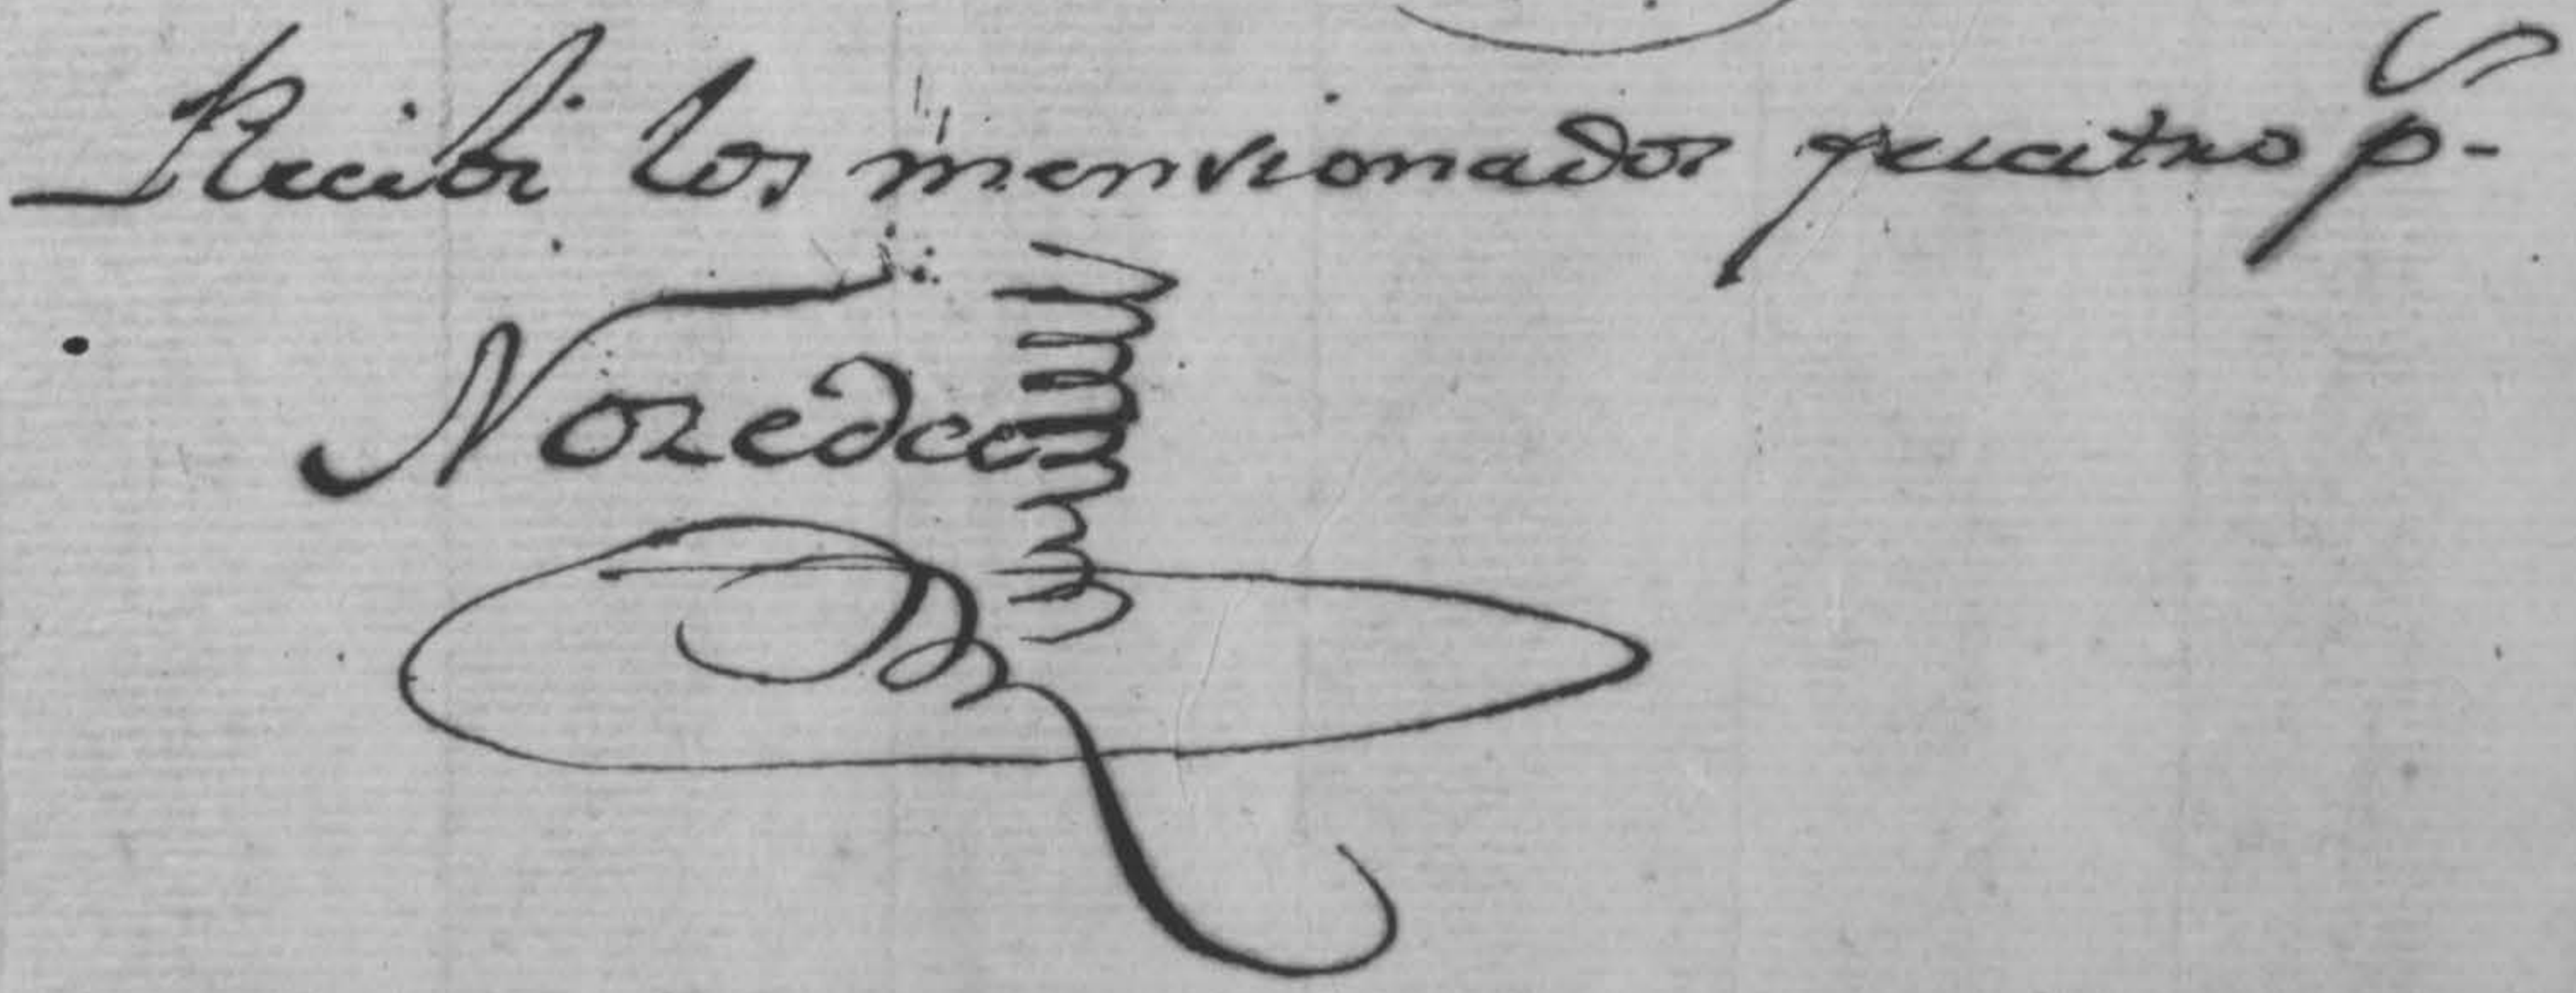 Recibi los menvionados quatro ps.
Noredea